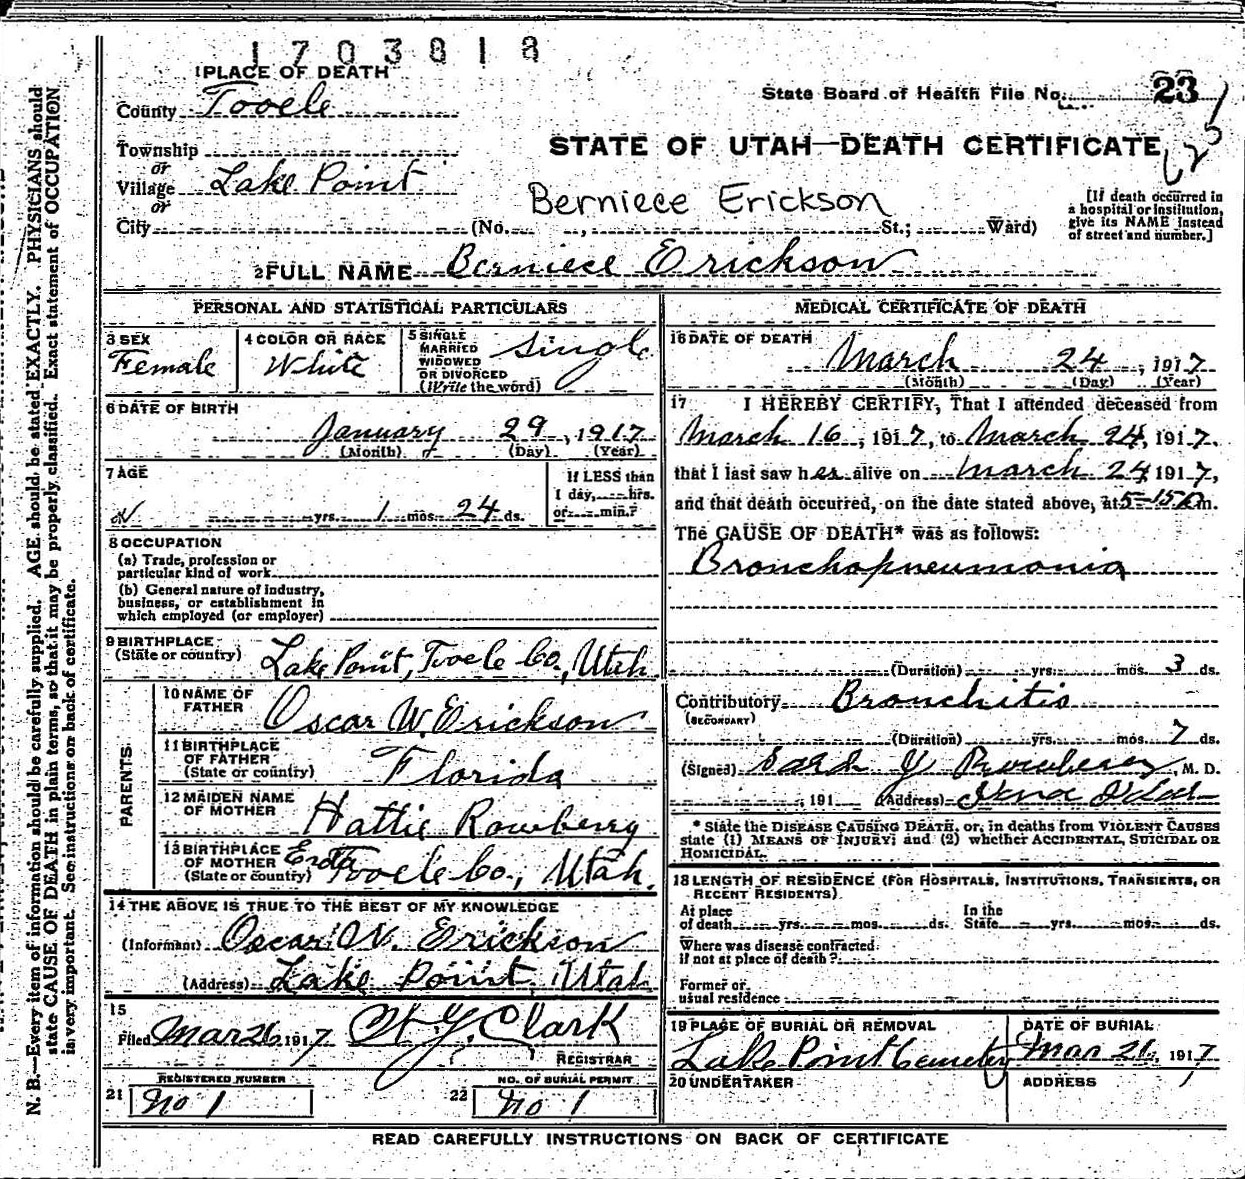 1703818
1 PLACE OF DEATH
State Board of Health File No. 23
County Tooele
STATE OF UTAH—DEATH CERTIFICATE
Township
or
Village Lake Point
or
Berniece Erickson
[If death occurred in
a hospital or institution,
give its NAME instead
of street and number.]
City (No. , St.; Ward)
2 FULL NAME Berniece Erickson
PERSONAL AND STATISTICAL PARTICULARS
3 SEX
Female
4 COLOR OR RACE
White
5 SINGLE
MARRIED
WIDOWED
OR DIVORCED
(Write the word)
Single
6 DATE OF BIRTH
January 29, 1917
(Month) (Day) (Year)
7 AGE
yrs. 1 mos. 24 ds.
If LESS than
1 day, hrs.
or min.?
8 OCCUPATION
(a) Trade, profession or
particular kind of work
(b) General nature of industry,
business, or establishment in
which employed (or employer)
9 BIRTHPLACE
(State or country)
Lake Point, Tooele Co., Utah
PARENTS
10 NAME OF
FATHER
Oscar W. Erickson
11 BIRTHPLACE
OF FATHER
(State or country)
Florida
12 MAIDEN NAME
OF MOTHER
Hattie Rowberry
13 BIRTHPLACE
OF MOTHER
(State or country)
Erda Tooele Co., Utah.
14 THE ABOVE IS TRUE TO THE BEST OF MY KNOWLEDGE
(Informant) Oscar W. Erickson
(Address) Lake Point, Utah
15
Filed Mar 26, 1917 Clark
REGISTRAR
REGISTERED NUMBER
21 No 1
NO. OF BURIAL PERMIT
22 No 1
MEDICAL CERTIFICATE OF DEATH
16 DATE OF DEATH
March 24, 1917
(Month) (Day) (Year)
17 I HEREBY CERTIFY, That I attended deceased from
March 16, 1917, to March 24, 1917.
that I last saw her alive on March 24, 1917,
and that death occurred, on the date stated above, at 5-15 m.
The CAUSE OF DEATH* was as follows:
Bronchopneumonia
(Duration) yrs. mos. 3 ds.
Contributory Bronchitis
(SECONDARY)
(Duration) yrs. mos. 7 ds.
(Signed) , M. D.
, 191 (Address)
* State the DISEASE CAUSING DEATH, or, in deaths from VIOLENT CAUSES
state (1) MEANS OF INJURY; and (2) whether ACCIDENTAL, SUICIDAL OR
HOMICIDAL.
18 LENGTH OF RESIDENCE (FOR HOSPITALS, INSTITUTIONS, TRANSIENTS, OR
RECENT RESIDENTS).
At place In the
of death yrs. mos. ds. State yrs. mos. ds.
Where was disease contracted
if not at place of death?
Former or
usual residence
19 PLACE OF BURIAL OR REMOVAL
Lake Point Cemetery
DATE OF BURIAL
Mar 26, 1917
20 UNDERTAKER
ADDRESS
READ CAREFULLY INSTRUCTIONS ON BACK OF CERTIFICATE
N. B.—Every item of information should be carefully supplied. AGE should be stated EXACTLY. PHYSICIANS should
state CAUSE OF DEATH in plain terms, so that it may be properly classified. Exact statement of OCCUPATION
is very important. See instructions on back of certificate.